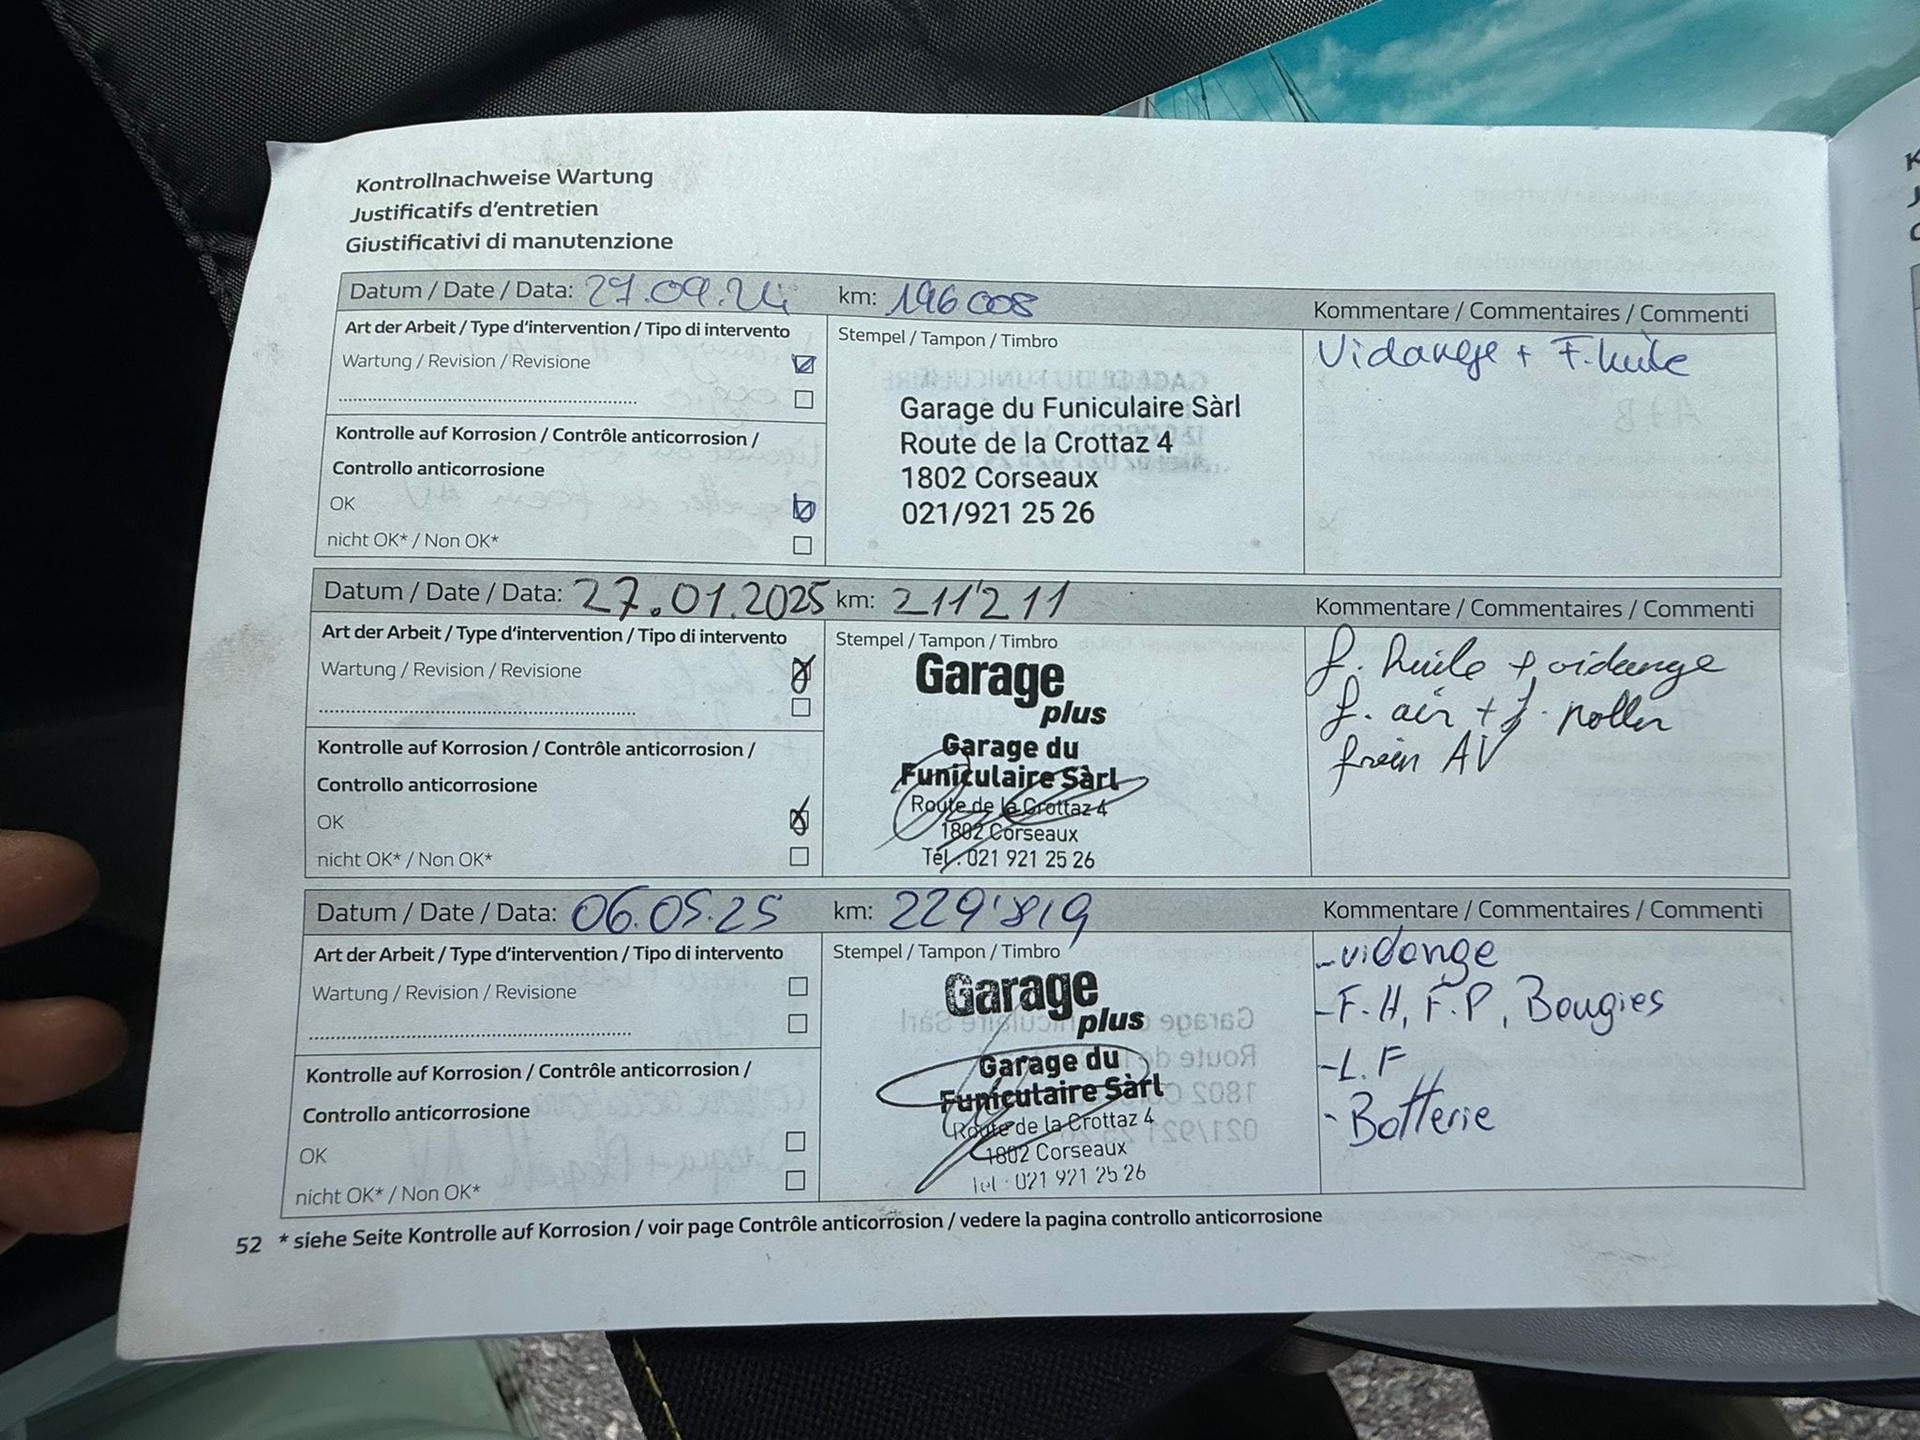 Kontrollnachweise Wartung
Justificatifs d'entretien
Giustificativi di manutenzione
Datum / Date / Data: 27.09.24 km: 196008 Kommentare / Commentaires / Commenti
Art der Arbeit / Type d'intervention / Tipo di intervento
Stempel / Tampon / Timbro
Vidange + F. huile
Wartung / Revision / Revisione
Garage du Funiculaire Sàrl
Route de la Crottaz 4
1802 Corseaux
021/921 25 26
Kontrolle auf Korrosion / Contrôle anticorrosion /
Controllo anticorrosione
OK
nicht OK* / Non OK*
Datum / Date / Data: 27.01.2025 km: 211'211 Kommentare / Commentaires / Commenti
Art der Arbeit / Type d'intervention / Tipo di intervento
Stempel / Tampon / Timbro
f. huile + vidange
f. air + f. pollen
frein AV
Wartung / Revision / Revisione
Garage
plus
Garage du
Funiculaire Sàrl
Route de la Crottaz 4
1802 Corseaux
Tél. 021 921 25 26
Kontrolle auf Korrosion / Contrôle anticorrosion /
Controllo anticorrosione
OK
nicht OK* / Non OK*
Datum / Date / Data: 06.05.25 km: 229'819 Kommentare / Commentaires / Commenti
Art der Arbeit / Type d'intervention / Tipo di intervento
Stempel / Tampon / Timbro
- vidange
- F.H, F.P, Bougies
- L.F
- Batterie
Wartung / Revision / Revisione
Garage
plus
Garage du
Funiculaire Sàrl
Route de la Crottaz 4
1802 Corseaux
Tel. 021 921 25 26
Kontrolle auf Korrosion / Contrôle anticorrosion /
Controllo anticorrosione
OK
nicht OK* / Non OK*
52 * siehe Seite Kontrolle auf Korrosion / voir page Contrôle anticorrosion / vedere la pagina controllo anticorrosione